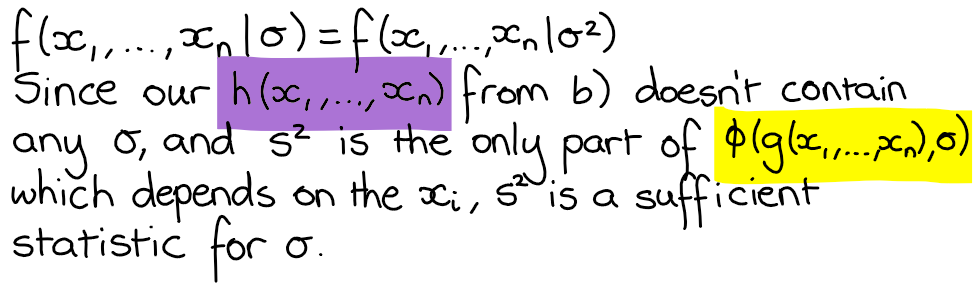 f(x₁,...,xₙ|σ) = f(x₁,...,xₙ|σ²)
Since our h(x₁,...,xₙ) from b) doesn't contain
any σ, and s² is the only part of ϕ(g(x₁,...,xₙ),σ)
which depends on the xᵢ, s² is a sufficient
statistic for σ.